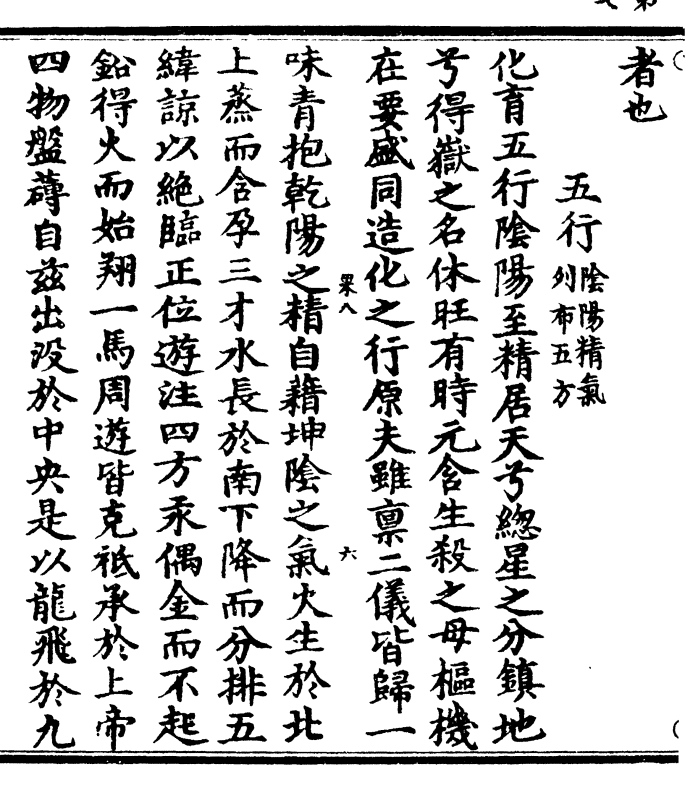 者也
五行陰陽精氣列布五方
化育五行陰陽至精居天兮緫星之分鎮地
兮得嶽之名休旺有時元含生殺之母樞機
在要盛同造化之行原夫雖禀二儀皆歸一
味青抱乾陽之精自藉坤陰之氣火生於北
上蒸而含孕三才水長於南下降而分排五
緯諒以絶臨正位遊注四方汞偶金而不起
鉛得火而始翔一馬周遊皆克祇承於上帝
四物盤礡自兹出没於中央是以龍飛於九
果八
六